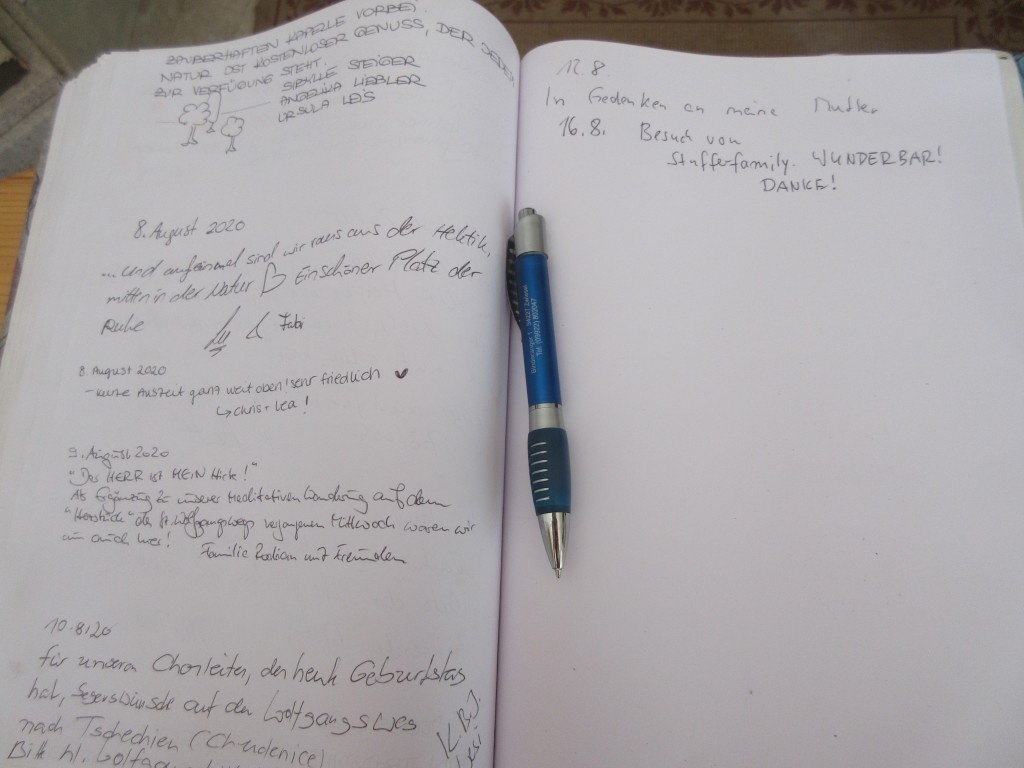 ZAUBERHAFTEN KAPELLE VORBEI.
NATUR IST KOSTENLOSER GENUSS, DER JEDEM
ZUR VERFÜGUNG STEHT.
SIBYLLE STEIGER
ANGELIKA LIEBLER
URSULA LEIS
8. August 2020
... und auf einmal sind wir raus aus der Hektik,
mitten in der Natur Ein schöner Platz der
Ruhe
& Fabi
8. August 2020
- kurze Auszeit ganz weit oben! sehr friedlich
↳ Chris + Lea!
9. August 2020
"Der HERR ist MEIN Hirte!"
Als Ergänzung zu unserer Meditativen Wanderung auf dem
"Herzstück" des St. Wolfgangsweg vergangenen Mittwoch waren wir
nun auch hier!
Familie und Freunden
10.8.20
für unseren Chorleiter, der heute Geburtstag
hat, Segenswünsche auf den Wolfgangsweg
nach Tschechien (Chudenice)
Bitte hl. Wolfgang
12.8.
In Gedenken an meine Mutter
16.8. Besuch von
Stufferfamily. WUNDERBAR!
DANKE!